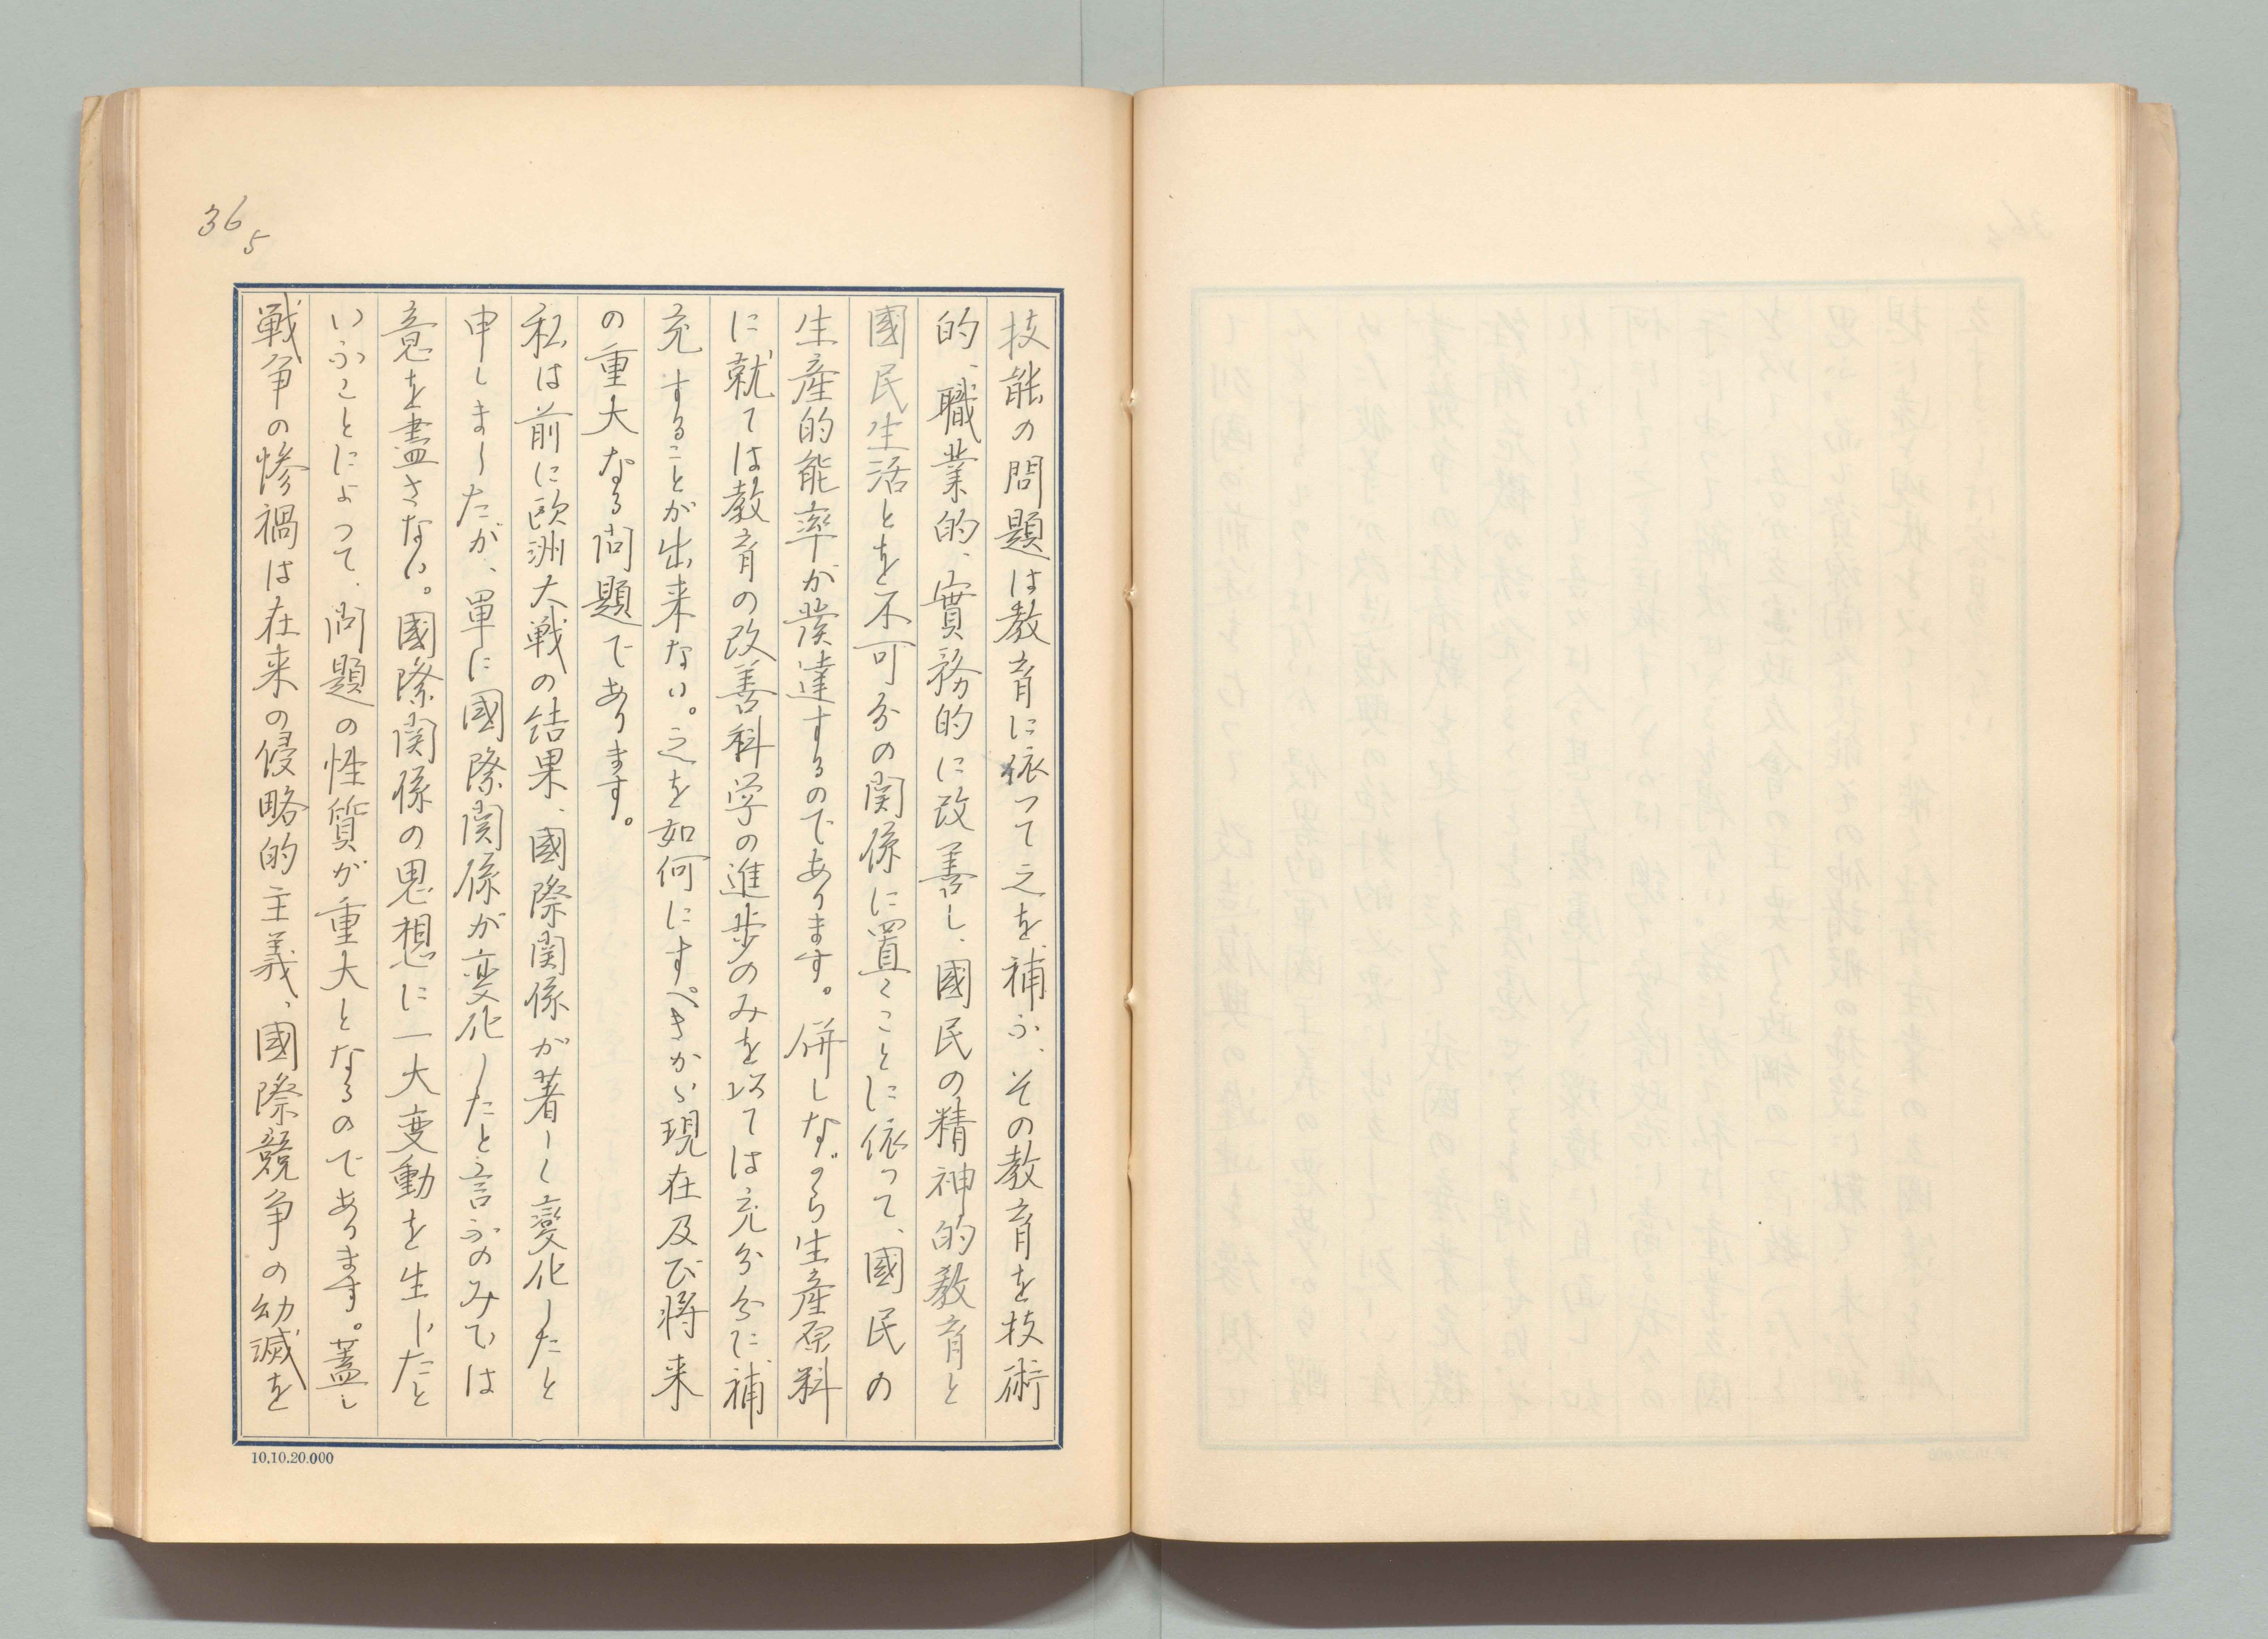 365
技能の問題は教育に依つて之を補ふ、その教育を技術
的、職業的、實務的に改善し、國民の精神的教育と
國民生活とを不可分の関係に置くことに依つて、國民の
生産的能率が発達するのであります。併しながら生産原料
に就ては教育の改善科学の進歩のみを以ては充分分に補
充することが出来ない。之を如何にすべきか、現在及び将来
の重大なる問題であります。
私は前に欧洲大戦の結果、國際関係が著しく變化したと
申しましたが、單に國際関係が変化したと言ふのみでは
意を盡さない。國際関係の思想に一大変動を生じたと
いふことによつて、問題の性質が重大となるのであります。蓋し
戦争の惨禍は在来の侵略的主義、國際競争の幼滅を
10.10.20.000